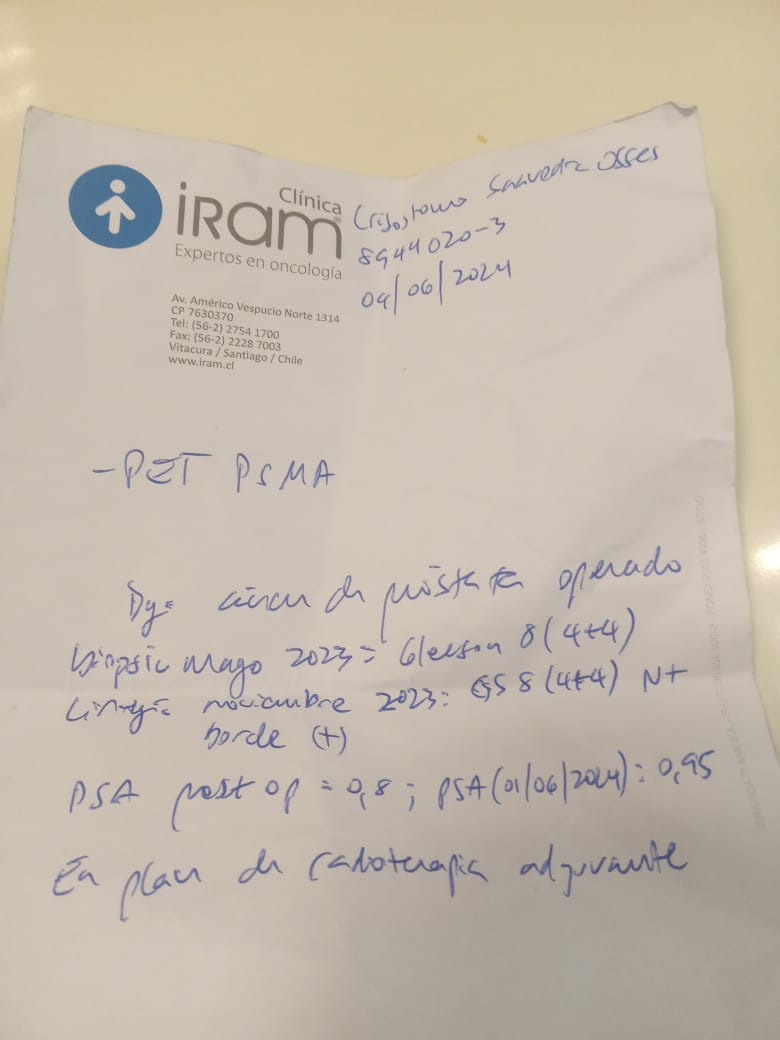 Clínica
iRam®
Expertos en oncología
Av. Américo Vespucio Norte 1314
CP 7630370
Tel: (56-2) 2754 1700
Fax: (56-2) 2228 7003
Vitacura / Santiago / Chile
www.iram.cl
Crisóstomo Saavedra Osses
8944020-3
04/06/2024
- PET PSMA
Dg= cáncer de próstata operado
biopsia mayo 2023= Gleason 8 (4+4)
Cirugía noviembre 2023: GS 8 (4+4) N+
borde (+)
PSA post op = 0,8 ; PSA (01/06/2024): 0,95
En plan de radioterapia adyuvante